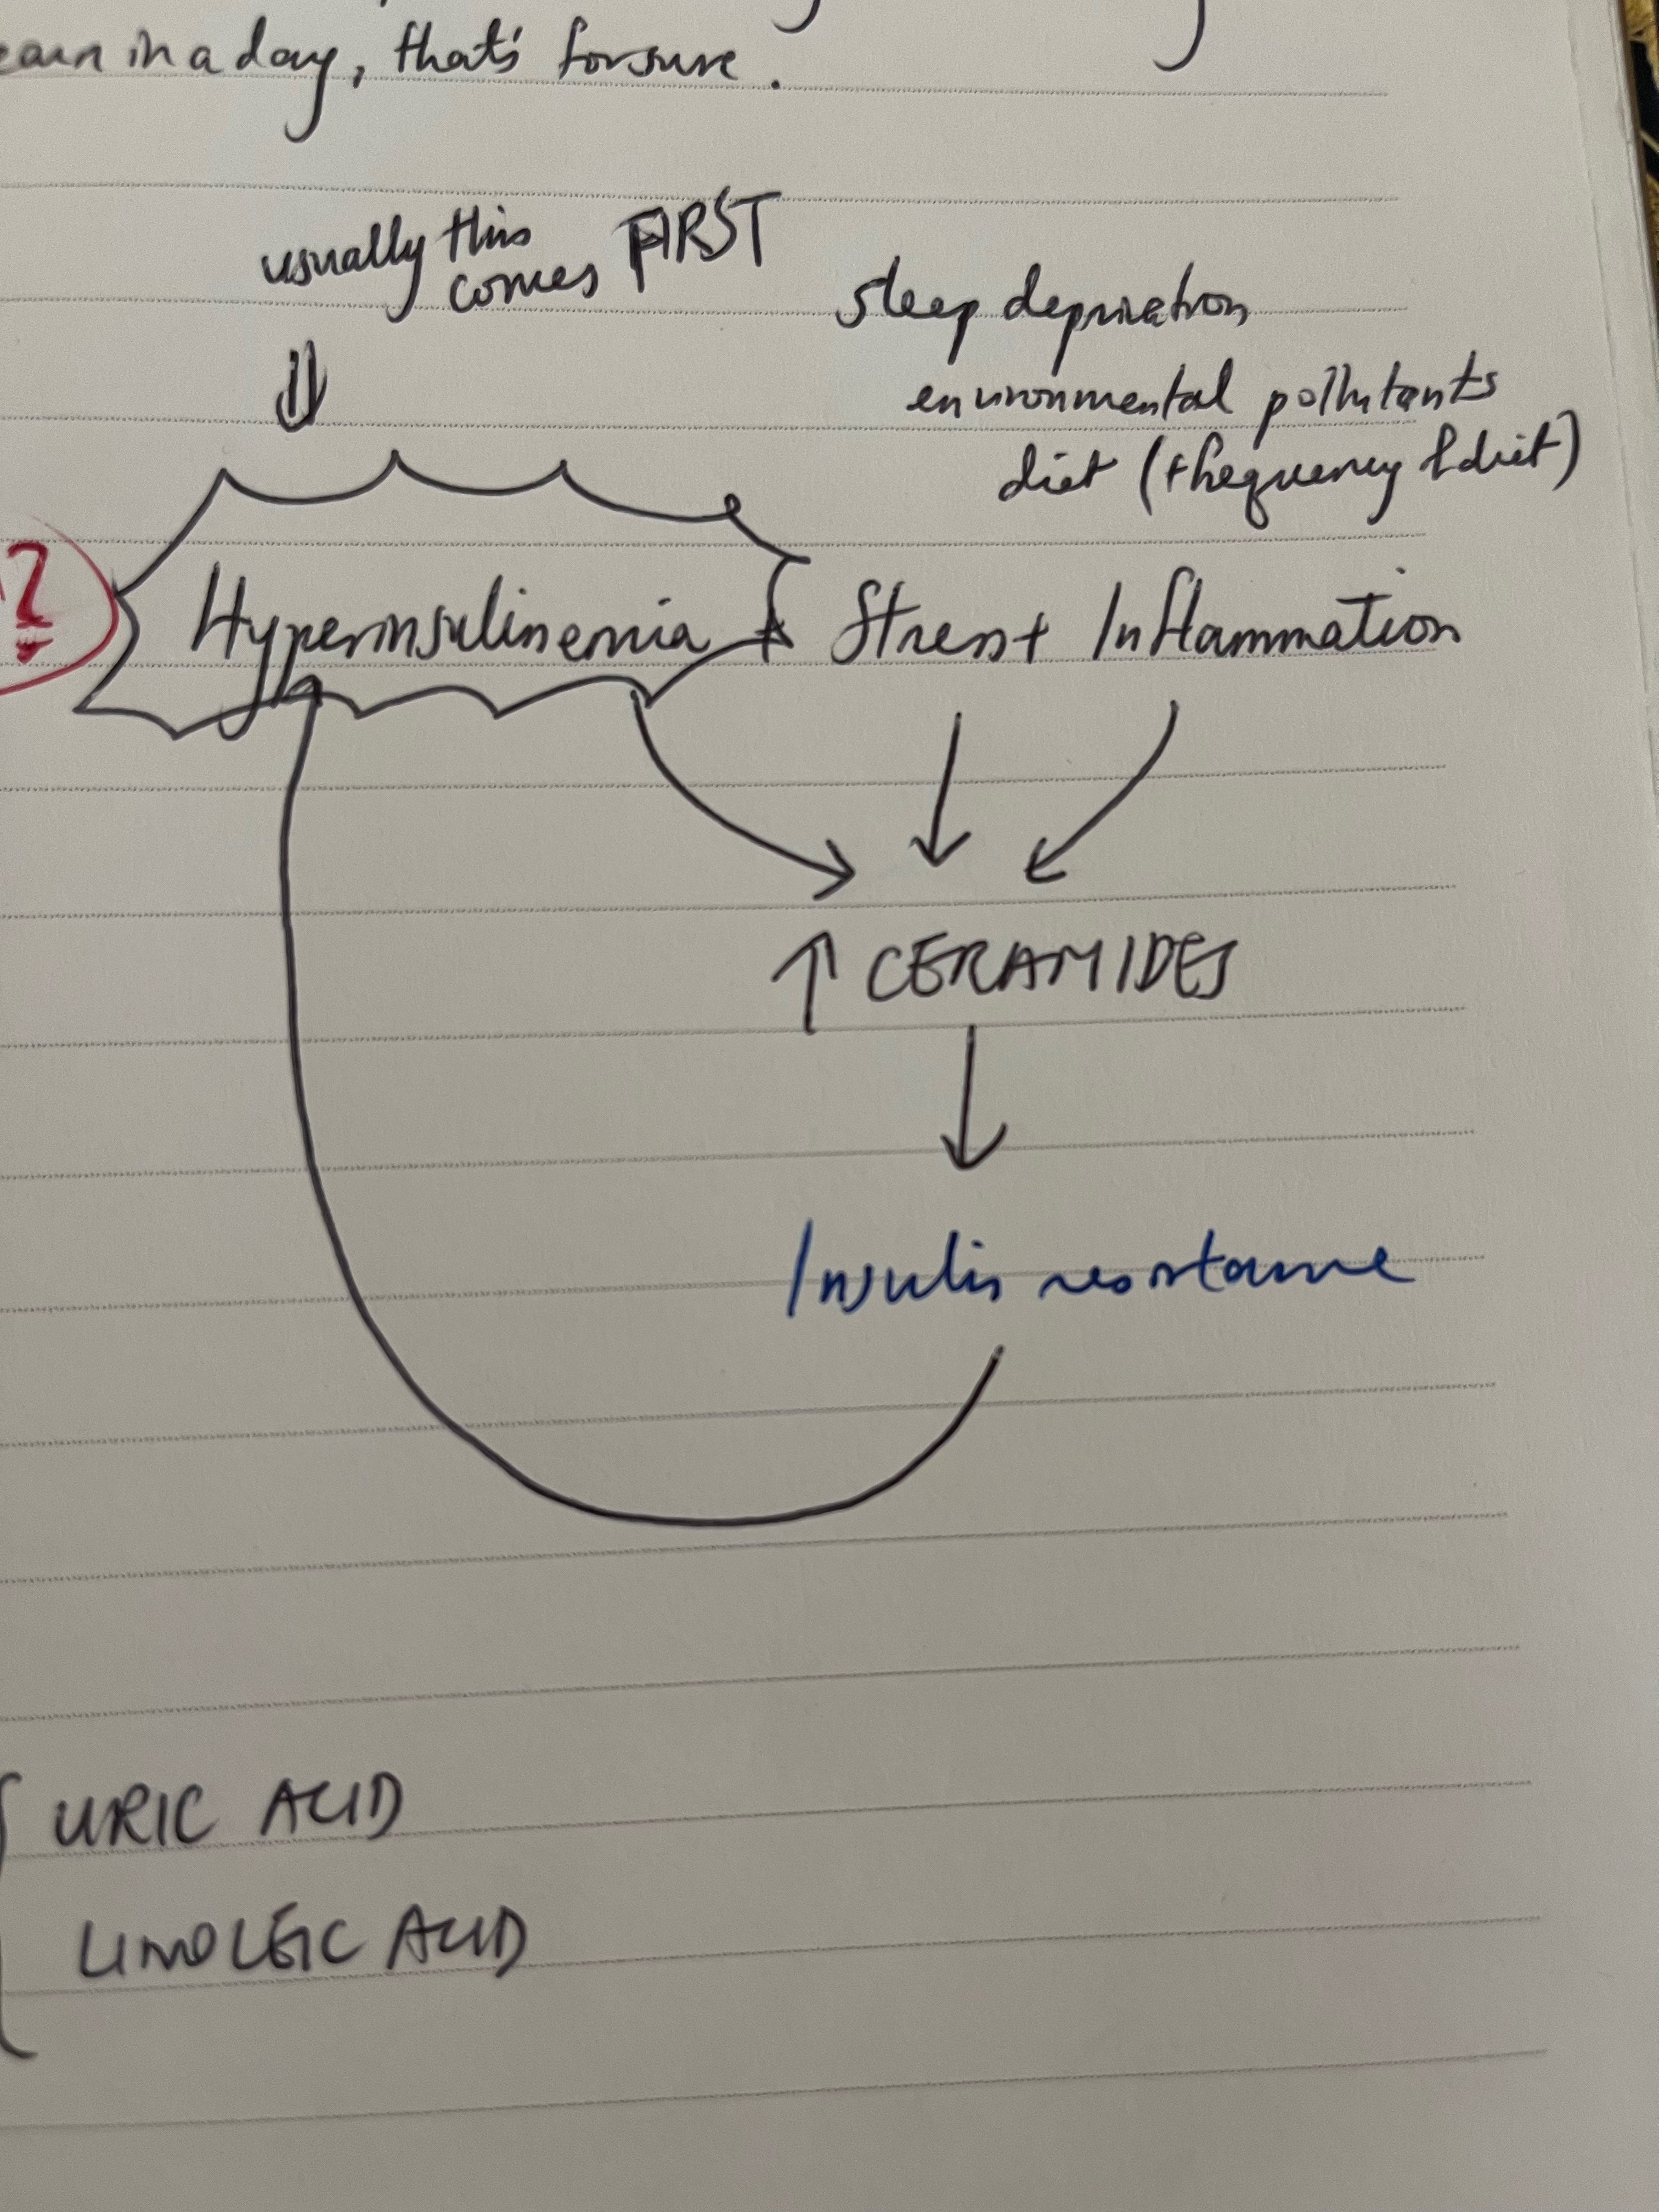 in a day, that's for sure.
usually this
comes FIRST
sleep deprivation
environmental pollutants
diet (+ frequency of diet)
?
Hyperinsulinemia + Stress + Inflammation
↑ CERAMIDES
Insulin resistance
URIC ACID
LINOLEIC ACID